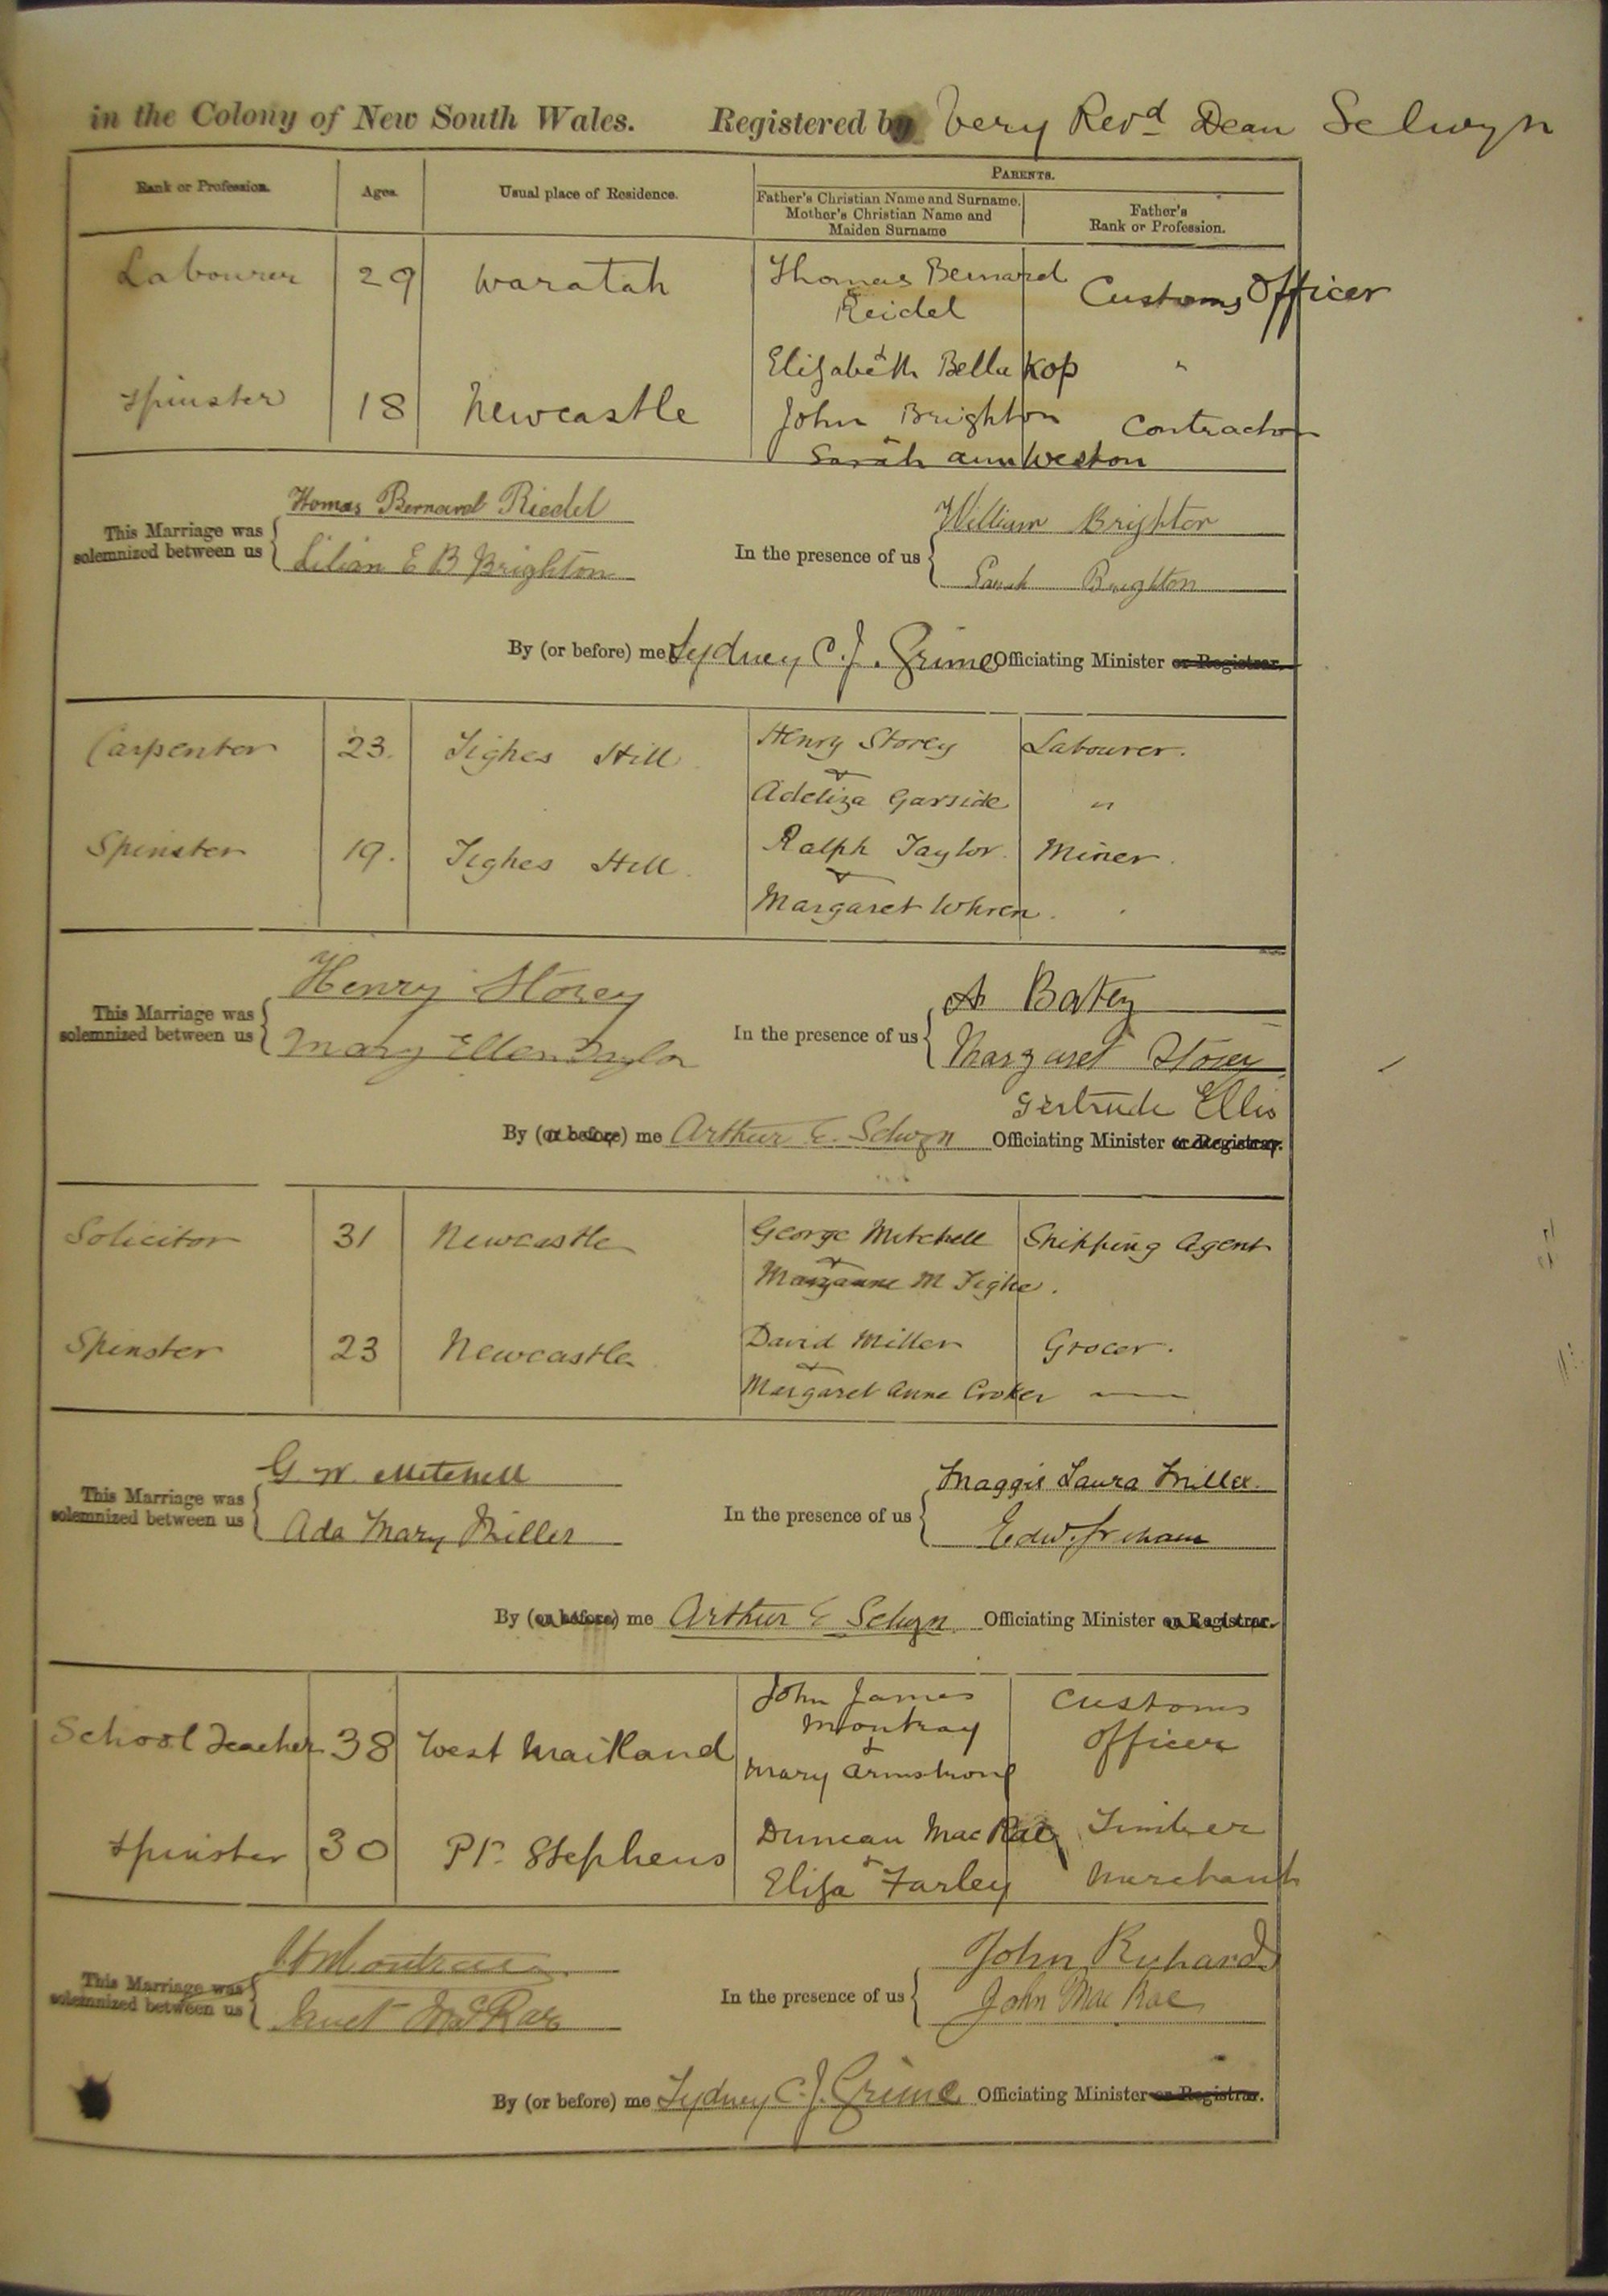 in the Colony of New South Wales. Registered by Very Revd Dean Selwyn
Rank or Profession. Ages. Usual place of Residence. PARENTS.
Father's Christian Name and Surname. Mother's Christian Name and Maiden Surname
Father's Rank or Profession.
Labourer 29 Waratah Thomas Bernard Customs Officer
Reidel
&
Elizabeth Bella Kop "
Spinster 18 Newcastle John Brighton Contractor
Sarah ann Weston
Thomas Bernard Riedel William Brighton
This Marriage was solemnized between us In the presence of us
Lilian E B Brighton Sarah Brighton
By (or before) me Sydney C. J. Grime Officiating Minister or Registrar.
Carpenter 23. Tighes Hill Henry Storey Labourer.
&
Adeliza Garside "
Spinster 19. Tighes Hill. Ralph Taylor. Miner.
&
Margaret Whren.
Henry Storey A Batey
This Marriage was solemnized between us In the presence of us
Mary Ellen Taylor Margaret Storey
Gertrude Ellis
By (or before) me Arthur E. Selwyn Officiating Minister or Registrar.
Solicitor 31 Newcastle George Mitchell Shipping Agent
&
M Tighe.
Spinster 23 Newcastle David Miller Grocer.
&
Margaret Anne Croker
G W Mitchell Maggie Laura Miller.
This Marriage was solemnized between us In the presence of us
Ada Mary Miller Edw.
By (or before) me Arthur E Selwyn. Officiating Minister or Registrar.
School Teacher 38 West Maitland John James Customs
Montray Officer
&
Mary Armstrong
Spinster 30 Pt. Stephens Duncan MacRae Timber
&
Eliza Farley Merchant
Montray John Richards
This Marriage was solemnized between us In the presence of us
Janet MacRae John MacRae
By (or before) me Sydney C. J. Grime Officiating Minister or Registrar.